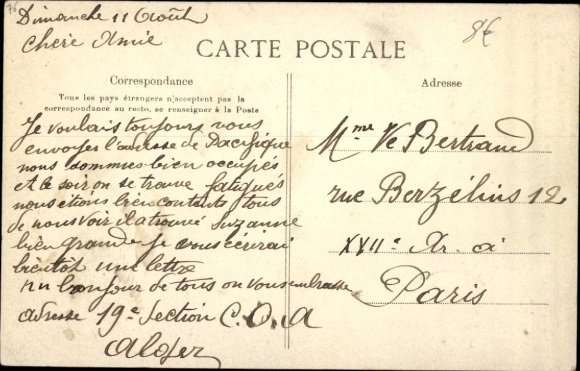 Dimanche 11 Août
8€
Chère Amie
CARTE POSTALE
Correspondance
Tous les pays étrangers n'acceptent pas la
correspondance au recto, se renseigner à la Poste
Adresse
Je voulais toujours vous
envoyer l'adresse de Pacifique
nous sommes bien occupés
et le soir on se trouve fatigués
nous étions bien contents tous
de nous voir il a trouvé Suzanne
bien grande je vous écrirai
bientôt une lettre
un bonjour de tous on vous embrasse
adresse 19e Section C.O.A
Alger
Mme Ve Bertrand
rue Berzélius 12
XVIIe Ar. à
Paris